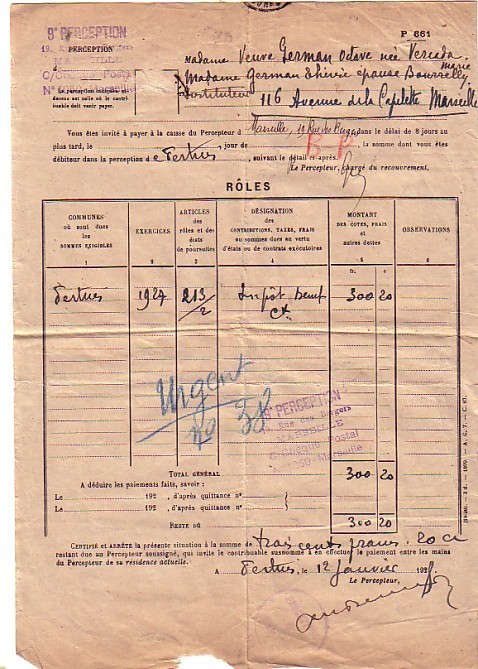 P 661
9e PERCEPTION
PERCEPTION
MARSEILLE
C/Chèque Postal
Madame Veuve German Octave née Vercéda
Madame German Thérèse Marie épouse Bourrelly
Institutrice
116 Avenue de la Capelette Marseille
La perception indiquée ci-
dessus est celle où le contri-
buable doit venir payer.
Vous êtes invité à payer à la caisse du Percepteur d Marseille, 19 Rue des dans le délai de 8 jours au
plus tard, le jour de la somme dont vous êtes
débiteur dans la perception de Pertuis, suivant le détail ci-après.
Le Percepteur, chargé du recouvrement.
RÔLES
COMMUNES où sont dues les SOMMES EXIGIBLES
EXERCICES
ARTICLES des rôles et des états de poursuites
DÉSIGNATION des CONTRIBUTIONS, TAXES, FRAIS ou sommes dues en vertu d'états ou de contrats exécutoires
MONTANT DES COTES, FRAIS et autres dettes
OBSERVATIONS
1 2 3 4 5 6
fr. c.
Pertuis 1927 213/2 Impôt Bénéf 300 20
Cx
Urgent
9e PERCEPTION
19, Rue des Bergers
MARSEILLE
C/Chèque Postal
Marseille
TOTAL GÉNÉRAL 300 20
A déduire les paiements faits, savoir :
Le 192 , d'après quittance n°
Le 192 , d'après quittance n°
RESTE DÛ 300 20
CERTIFIÉ et ARRÊTÉ la présente situation à la somme de trois cents francs 20 c
restant due au Percepteur soussigné, qui invite le contribuable susnommé à en effectuer le paiement entre les mains
du Percepteur de sa résidence actuelle.
A Pertuis, le 12 Janvier 1928
Le Percepteur,